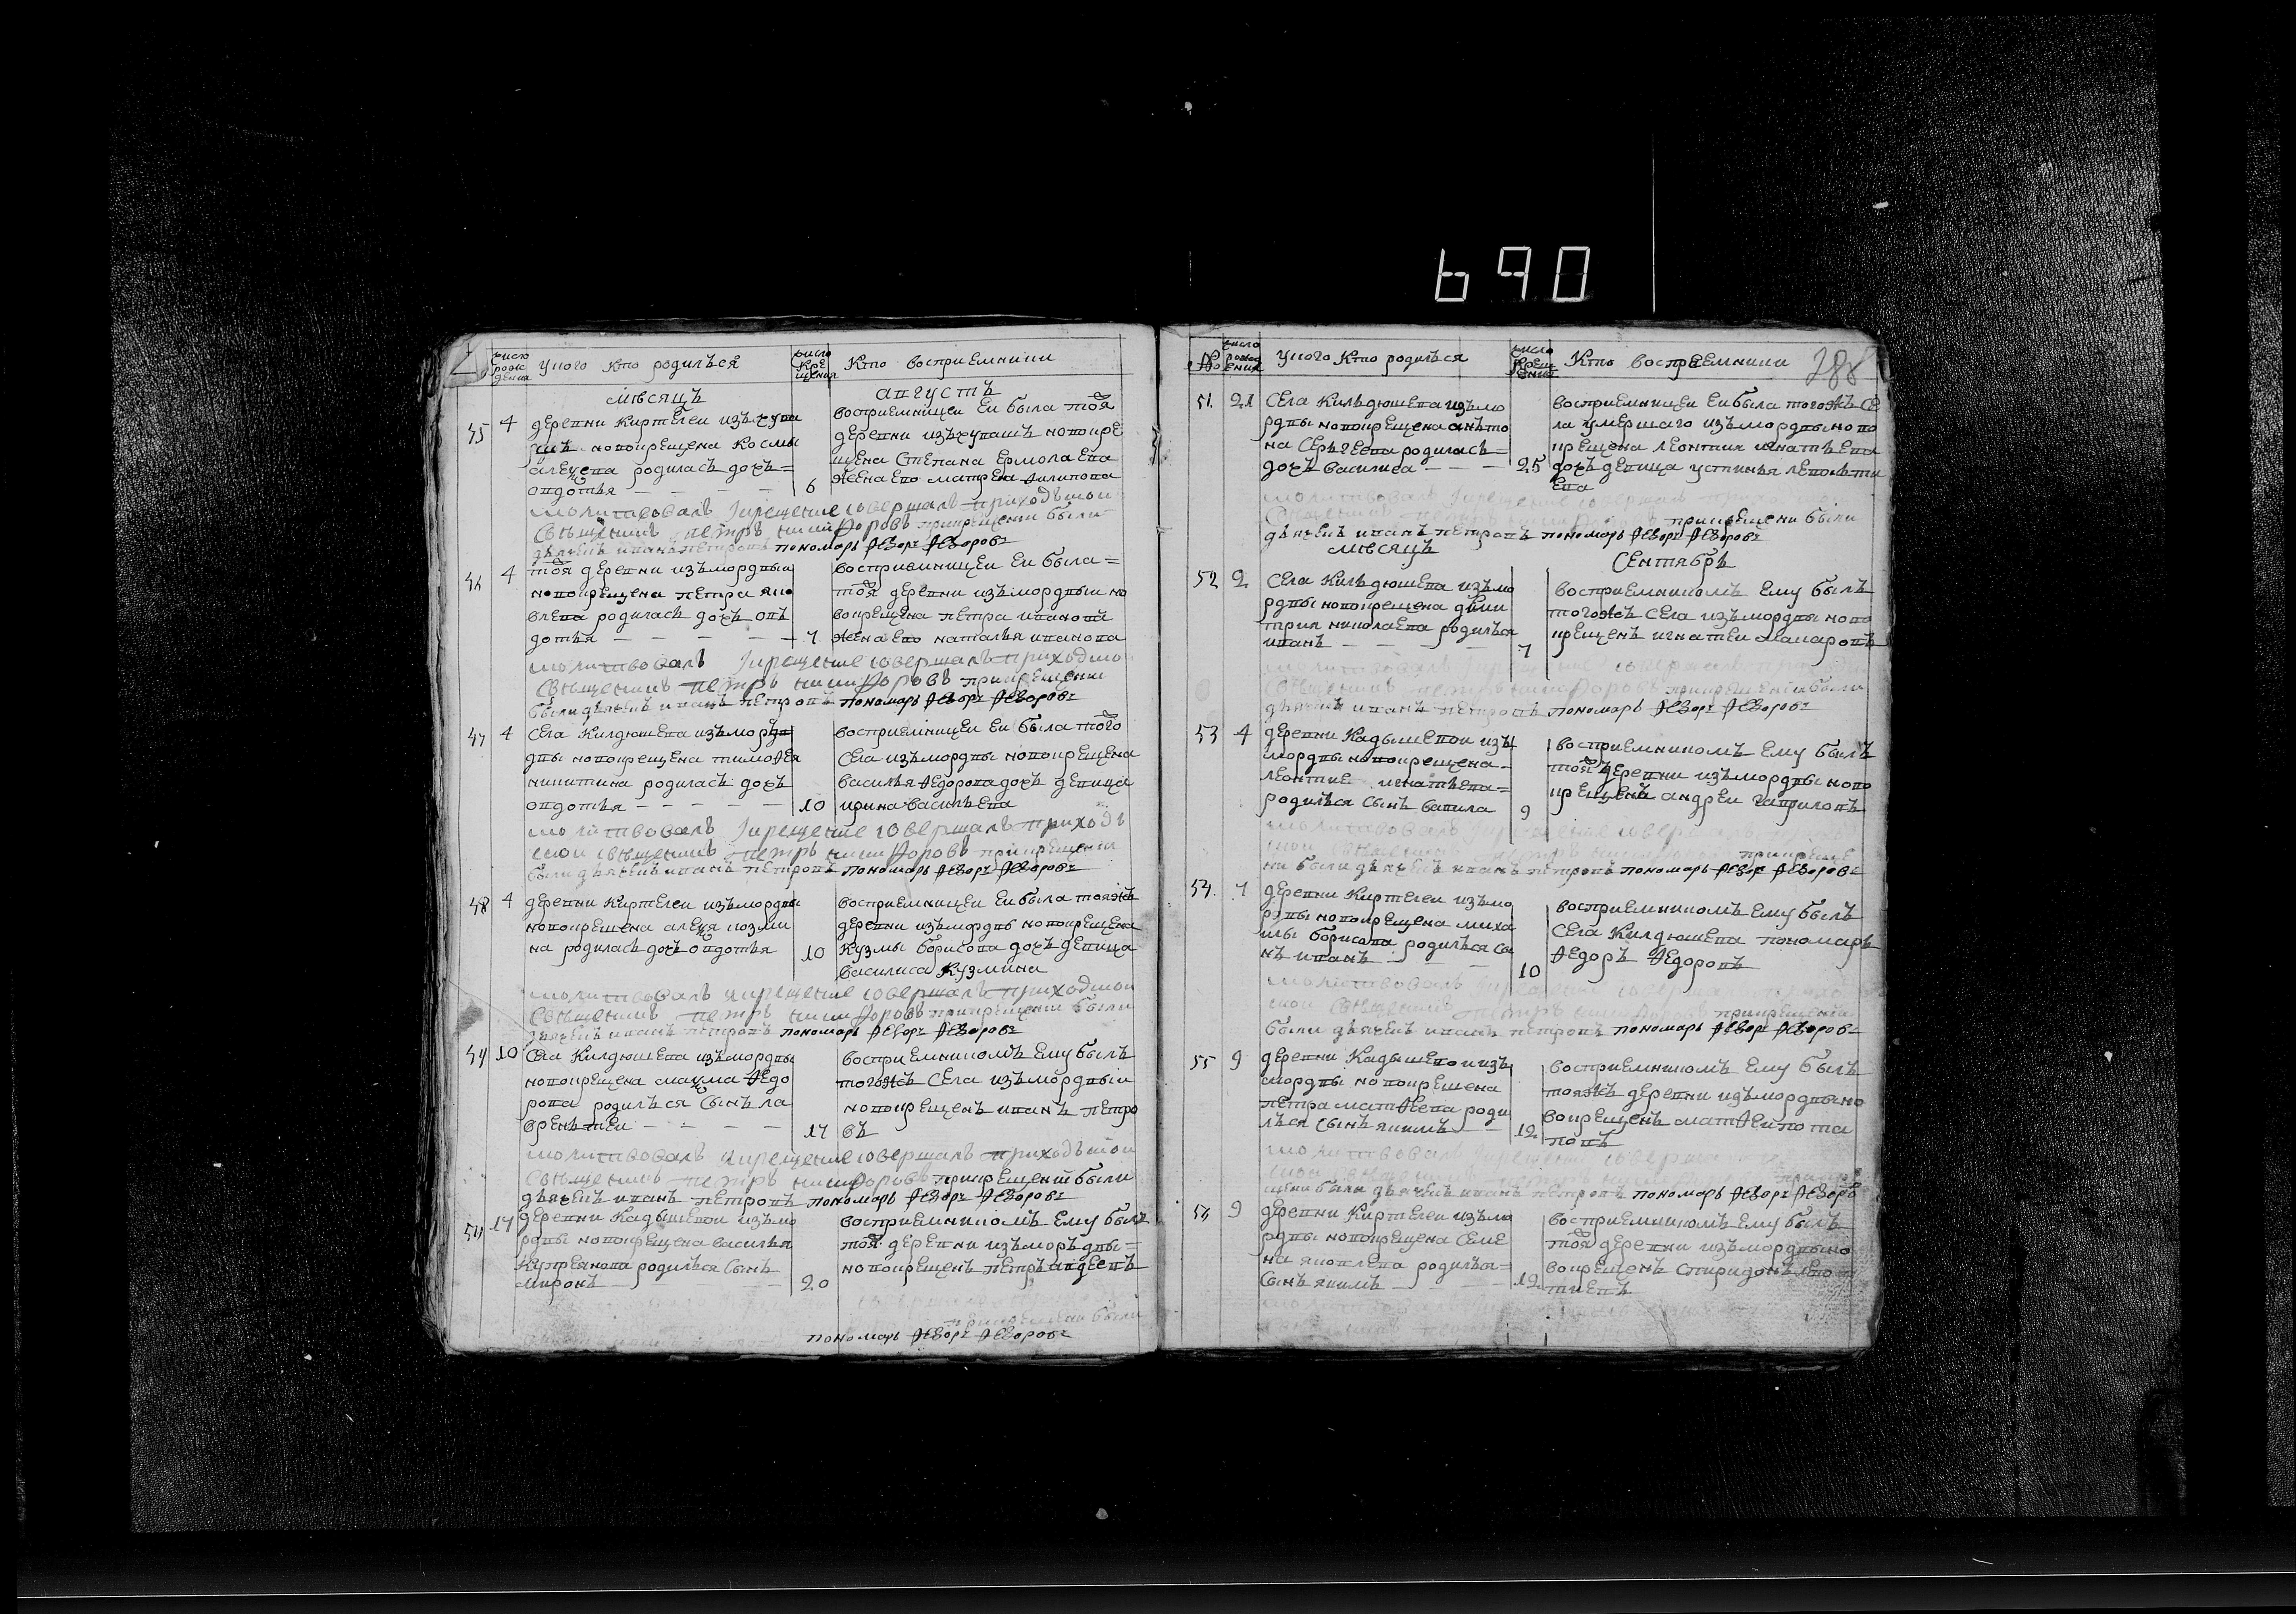 690
число рождения
У кого кто родился
число крещения
Кто восприемники
месяцъ
августъ
45
4
деревни Киртелеи изъ чува
шъ новокрещена Космы
алекѣева родилась дочь=
овдотья
6
восприемницеи еи была тоя
деревни изъ чувашъ новокре
щена Степана Ермолаева
жена ево матрена Филипова
молитвовалъ и крещение совершалъ приходъскои
священникъ петръ никифоровъ при крещении были
дьячекъ иванъ петровъ пономарь Федоръ Федоровъ
46
4
тоя деревни изъ мордвы
новокрещена петра яко
влева родилась дочь овъ
дотья
7
восприемницеи еи была=
тоя деревни изъ мордвы но
вокрещена петра иванова
жена ево наталья иванова
молитвовалъ и крещение совершалъ приходско
священникъ петръ никифоровъ при крещении
были дьячекъ иванъ петровъ пономарь Федоръ Федоровъ
47
4
Села Килдюшева изъ мор
двы новокрещена тимофея
никитина родилась дочь
овдотья
10
восприемницеи еи была того
Села изъ мордвы новокрещена
василья Федорова дочь девица
ирина васильева
молитвовалъ и крещение совершалъ приходъ
скои священникъ петръ никифоровъ при крещении
были дьячекъ иванъ петровъ пономарь Федоръ Федоровъ
48
4
деревни Киртелеи изъ мордвы
новокрещена алекѣя козми
на родилась дочь овдотья
10
восприемницеи еи была тояжъ
деревни изъ мордвы новокрещена
Кузмы борисова дочь девица
василиса Кузмина
молитвовалъ и крещение совершалъ приходскои
священникъ петръ никифоровъ при крещении были
дьячекъ иванъ петровъ пономарь Федоръ Федоровъ
49
10
Села Килдюшева изъ мордвы
новокрещена макѣма Федо
рова родился сынъ ла
врентеи
17
восприемникомъ ему былъ
тогожъ Села изъ мордвы
новокрещенъ иванъ петро
въ
молитвовалъ и крещение совершалъ приходъскои
священникъ петръ никифоровъ при крещении были
дьячекъ иванъ петровъ пономарь Федоръ Федоровъ
50
17
деревни Кадышевои изъ мо
рдвы новокрещена василья
Купреянова родился сынъ
миронъ
20
восприемникомъ ему былъ
тоя деревни изъ моръдвы=
новокрещенъ петръ авдеевъ
при крещении были
пономарь Федоръ Федоровъ
№
число рождения
У кого кто родился
число крещения
Кто восприемники
288
51.
21
Села Килъдюшева изъ мо
рдвы новокрещена анъто
на Серъгеева родилась=
дочь василиса
25
восприемницеи еи была тогожъ Се
ла умершаго изъ мордвы ново
крещена леонтия игнатьева
дочь девица устинья леонъти
ева
молитвовалъ и крещение совершалъ
при крещени были
дьячекъ иванъ петровъ пономарь Федоръ Федоровъ
месяцъ
Сентябрь
52
2
Села Килъдюшева изъ мо
рдвы новокрещена дми
трия николаева родился
иванъ
7
восприемникомъ ему былъ
тогожъ Села изъ мордвы ново
крещенъ игнатеи макаровъ
священникъ петръ никифоровъ при крещении были
дьячекъ иванъ петровъ пономарь Федоръ Федоровъ
53
4
деревни Кадышевои изъ
мордвы новокрещена
леонтие игнатьева=
родился сынъ вавила
9
восприемникомъ ему былъ
тоя деревни изъ мордвы ново
крещенъ андреи гавриловъ
молитвовалъ и крещение совершалъ
при креще
ни были дьячекъ иванъ петровъ пономарь Федоръ Федоровъ
54.
7
деревни Киртелеи изъ мо
рдвы новокрещена миха
илы борисова родился сы
нъ иванъ
10
восприемникомъ ему былъ
Села Килдюшева пономарь
Федоръ Федоровъ
молитвовалъ и крещение совершалъ
скои священникъ петръ никифоровъ при крещении
были дьячекъ иванъ петровъ пономарь Федоръ Федоровъ
55
9
деревни Кадышевои изъ
мордвы новокрещена
петра матфеева роди
лъся сынъ якимъ
12
восприемникомъ ему былъ
тояжъ деревни изъ мордвы но
вокрещенъ матфеи пота
повъ
молитвовалъ и крещение совершалъ
при кре
щени были дьячекъ иванъ петровъ пономарь Федоръ Федоровъ
56
9
деревни Киртелеи изъ мо
рдвы новокрещена Семе
на яковлева родился=
сынъ якимъ
12
восприемникомъ ему былъ
тоя деревни изъ мордвы но
вокрещенъ Спиридонъ леон
тиевъ